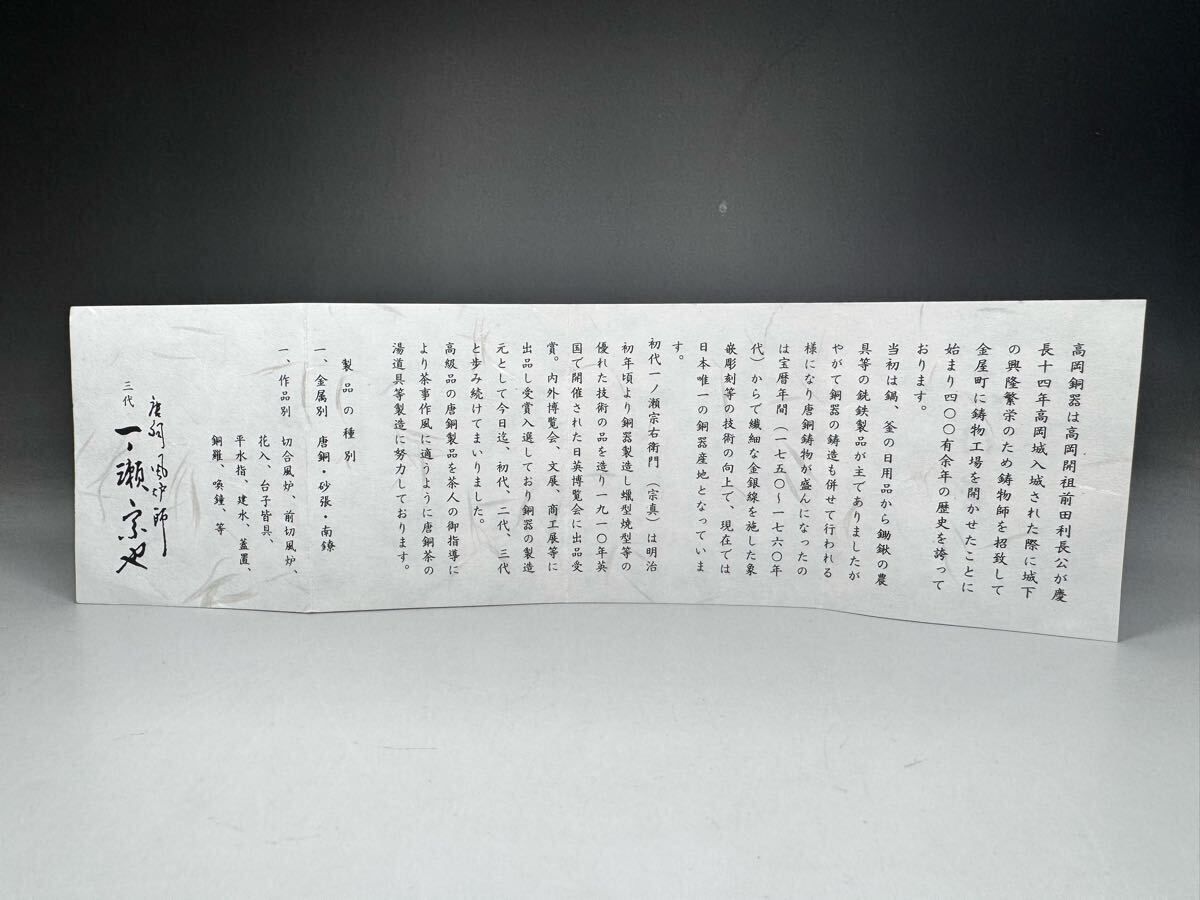 高岡銅器は高岡開祖前田利長公が慶
長十四年高岡城入城された際に城下
の興隆繁栄のため鋳物師を招致して
金屋町に鋳物工場を開かせたことに
始まり四〇〇有余年の歴史を誇って
おります。
当初は鍋、釜の日用品から鋤鍬の農
具等の銑鉄製品が主でありましたが
やがて銅器の鋳造も併せて行われる
様になり唐銅鋳物が盛んになったの
は宝暦年間（一七五〇〜一七六〇年
代）からで繊細な金銀線を施した象
嵌彫刻等の技術の向上で、現在では
日本唯一の銅器産地となっていま
す。
初代一ノ瀬宗右衛門（宗真）は明治
初年頃より銅器製造し蠟型焼型等の
優れた技術の品を造り一九一〇年英
国で開催された日英博覧会に出品受
賞。内外博覧会、文展、商工展等に
出品し受賞入選しており銅器の製造
元として今日迄、初代、二代、三代
と歩み続けてまいりました。
高級品の唐銅製品を茶人の御指導に
より茶事作風に適うように唐銅茶の
湯道具等製造に努力しております。
製品の種別
一、金属別　唐銅・砂張・南鐐
一、作品別　切合風炉、前切風炉、
花入、台子皆具、
平水指、建水、蓋置、
銅羅、喚鐘、等
唐銅風炉師
三代　一ノ瀬宗也